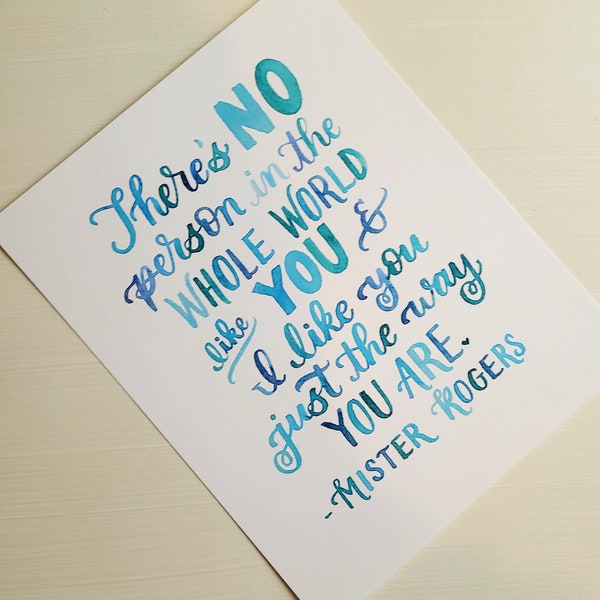 There's NO
person in the
WHOLE WORLD
like YOU &
I like you
just the way
YOU ARE.
-MISTER ROGERS